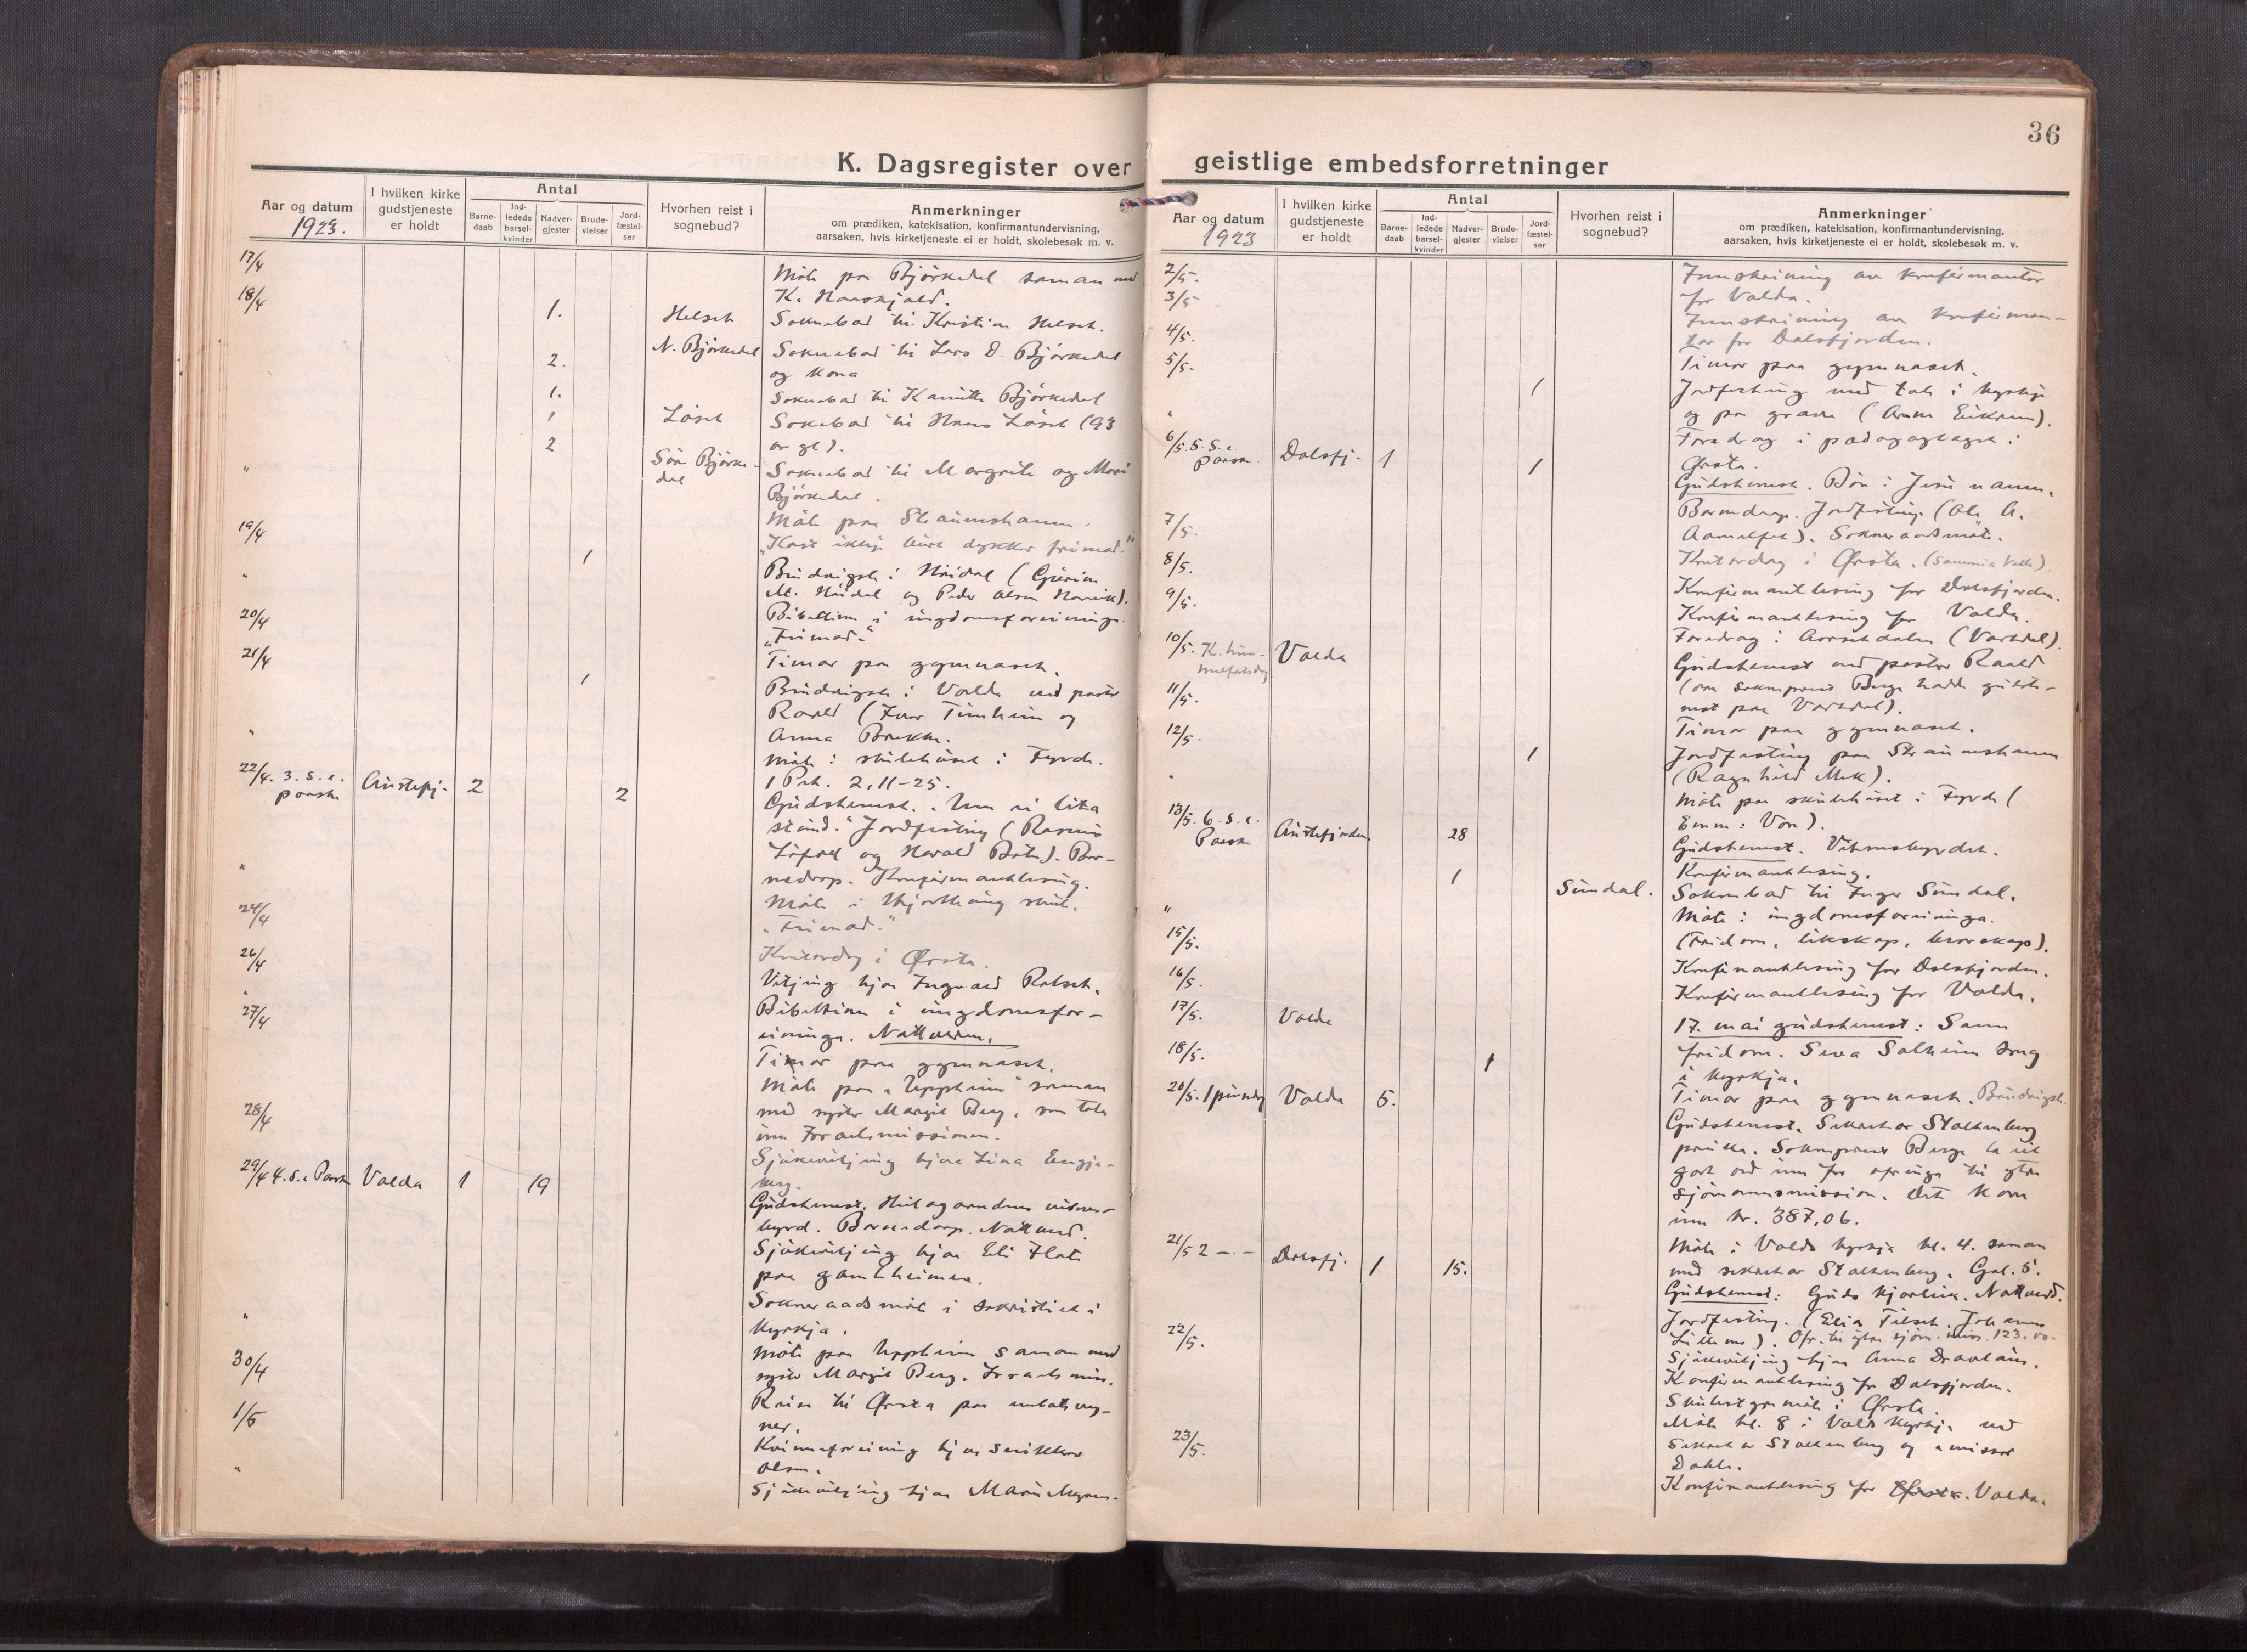 K. Dagsregister over
Aar og datum
1923.
I hvilken kirke
gudstjeneste
er holdt
Antal
Barne-
daab
Ind-
ledede
barsel-
kvinder
Nadver-
gjester
Brude-
vielser
Jord-
fæstel-
ser
Hvorhen reist i
sognebud?
Anmerkninger
om prædiken, katekisation, konfirmantundervisning,
aarsaken, hvis kirketjeneste ei er holdt, skolebesøk m. v.
17/4 Møte paa Bjørkedal saman med
18/4 K.
1. Helset Soknebod til Kristian Helset.
2. N. Bjørkedal Soknebod til Lars D. Bjørkedal
og kona
1. Soknebod til Kamilla Bjørkedal
1 Løset Soknebod til Hans Løset (93
2 aar gl).
Sør Bjørke-
dal
" Soknebod til Margrete og Mari
Bjørkedal.
Møte paa Straumshamn.
19/4 "Kast ikkje burt dykkar frimod."
1 Brudvigsle i
" og Peder Olsen
20/4 Bibeltime i ungdomsforeininga.
"Frimod."
21/4 Timar paa gymnaset.
1 Brudvigsle i Volda ved pastor
Raald (Ivar og
" Anna
Møte i skulehuset i Fyrde.
22/4. 3. s. e.
paaske Austefj. 2 2 1 Pet. 2, 11-25.
Gudstenest. "Um ei lita
stund." Jordfesting (Rasmus
og Harald ). Bor-
" nedaap. Konfirmantlesing.
Møte i skule.
24/4 "Frimod."
Kontordag i Ørsta.
26/4 Vitjing hjaa Ingvald Rotset.
" Bibeltime i ungdomsfor-
27/4 eininga. Nattverden.
Timar paa gymnaset.
Møte paa "Uppheim" saman
28/4 med syster Margit Berg, som tala
um Israelsmisjonen.
Sjukevitjing hjaa Lina Engje-
berg.
29/4 4. s. e. Paaske Volda 1 19 Gudstenest. Heilagandens vitnes-
byrd. Bornedaap. Nattverd.
Sjukevitjing hjaa Eli Flate
paa gamleheimen.
" Sokneraadsmøte i sakristiet i
kyrkja.
Møte paa Uppheim saman med
30/4 syster Margit Berg. Israelsmis.
Reise til Ørsta paa embets veg-
1/5 ner.
Kvinneforeining hjaa snikkar
" Olsen.
Sjukevitjing hjaa Marie
36
geistlige embedsforretninger
Aar og datum
1923
I hvilken kirke
gudstjeneste
er holdt
Antal
Barne-
daab
Ind-
ledede
barsel-
kvinder
Nadver-
gjester
Brude-
vielser
Jord-
fæstel-
ser
Hvorhen reist i
sognebud?
Anmerkninger
om prædiken, katekisation, konfirmantundervisning,
aarsaken, hvis kirketjeneste ei er holdt, skolebesøk m. v.
2/5. Innskriving av konfirmantar
3/5 for Volda.
Innskriving av konfirman-
4/5. tar for Dalsfjorden.
5/5. Timar paa gymnaset.
1 Jordfesting med tale i kyrkja
" og paa grava (Anna Eikrem).
Foredrag i pædagoglaget i
Ørsta.
6/5. 5. s. e.
paaske. Dalsfj. 1 1 Gudstenest. Bøn i Jesu namn.
Borndaap. Jordfesting (Ole A.
7/5. Aamelfot). Sokneraadsmøte.
8/5. Kontordag i Ørsta.
Konfirmantlesing for Dalsfjorden.
9/5. Konfirmantlesing for Volda.
Foredrag i Aarsetdalen (Vartdal).
10/5. Kr. him-
melfartsdag Volda Gudstenest ved pastor Raald
(daa sokneprest Berge hadde gudste-
11/5. nest paa Vartdal).
12/5. Timar paa gymnaset.
1 Jordfesting paa Straumshamn
" (Ragnhild Mek).
Møte paa skulehuset i Fyrde (
Emne: Von).
13/5. 6. s. e.
Paaske Austefjorden. 28 Gudstenest. Vitnesbyrdet.
Konfirmantlesing.
1 Sundal. Soknebod til Inger Sundal.
" Møte i ungdomsforeininga.
(Fridom, likskap, brorskap).
15/5. Konfirmantlesing for Dalsfjorden.
16/5. Konfirmantlesing for Volda.
17/5. Volda 17. mai gudstenest: Sann
fridom. Svea Solheim song
i kyrkja.
18/5. 1 Timar paa gymnaset. Brudvigsle.
20/5. 1 pinsedag Volda 5. Gudstenest. Sekretær Stoltenberg
preika. Sokneprest Berge la eit
godt ord inn for ofringa til ytre
sjømannsmission. Det kom
inn kr. 387,06.
Møte i Volda kyrkja kl. 4. saman
med sekretær Stoltenberg. Gal. 5.
21/5 2 – . – Dalsfj. 1 15. Gudstenest: Guds kjærleik. Nattverd.
Jordfesting. (
). Ofr. til ytre sjøm. miss. 123. 00.
22/5. Sjukevitjing hjaa Anna
Konfirmantlesing for Dalsfjorden.
Skulestyremøte i Ørsta.
Møte kl. 8 i Volda kyrkja ved
23/5. sekretær Stoltenberg og emissær
Dahle.
Konfirmantlesing for Ørsta. Volda.